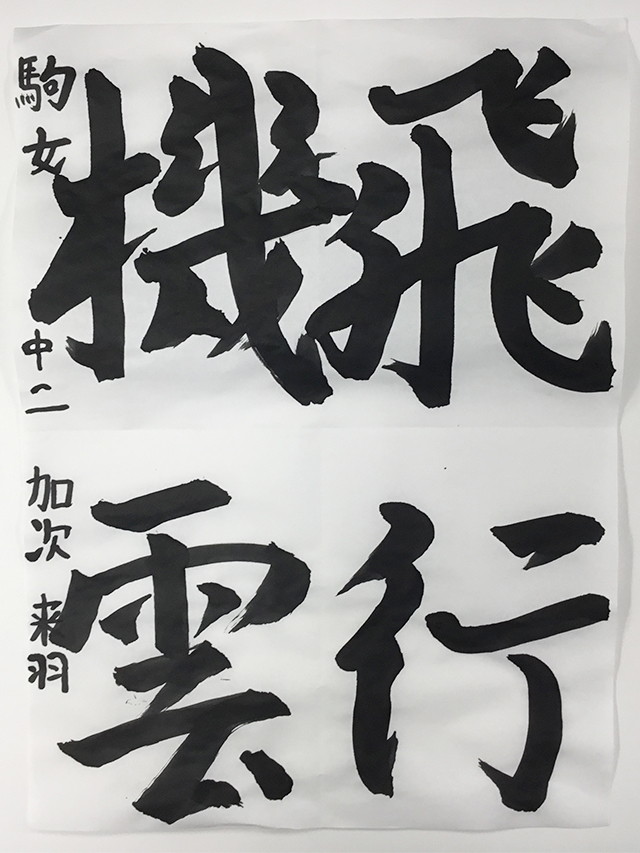 飛行
機雲
駒女 中二 加次 来羽